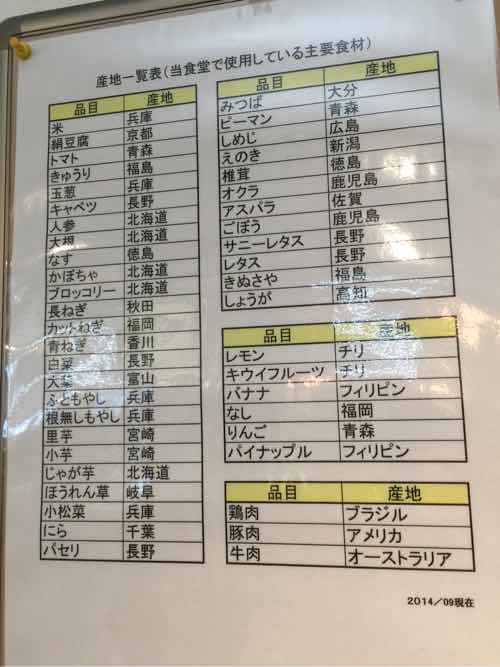 産地一覧表(当食堂で使用している主要食材)
品目 産地
米 兵庫
絹豆腐 京都
トマト 青森
きゅうり 福島
玉葱 兵庫
キャベツ 長野
人参 北海道
大根 北海道
なす 徳島
かぼちゃ 北海道
ブロッコリー 北海道
長ねぎ 秋田
カットねぎ 福岡
青ねぎ 香川
白菜 長野
大葉 富山
ふともやし 兵庫
根無しもやし 兵庫
里芋 宮崎
小芋 宮崎
じゃが芋 北海道
ほうれん草 岐阜
小松菜 兵庫
にら 千葉
パセリ 長野
品目 産地
みつば 大分
ピーマン 青森
しめじ 広島
えのき 新潟
椎茸 徳島
オクラ 鹿児島
アスパラ 佐賀
ごぼう 鹿児島
サニーレタス 長野
レタス 長野
きぬさや 福島
しょうが 高知
品目 産地
レモン チリ
キウイフルーツ チリ
バナナ フィリピン
なし 福岡
りんご 青森
パイナップル フィリピン
品目 産地
鶏肉 ブラジル
豚肉 アメリカ
牛肉 オーストラリア
2014/09現在